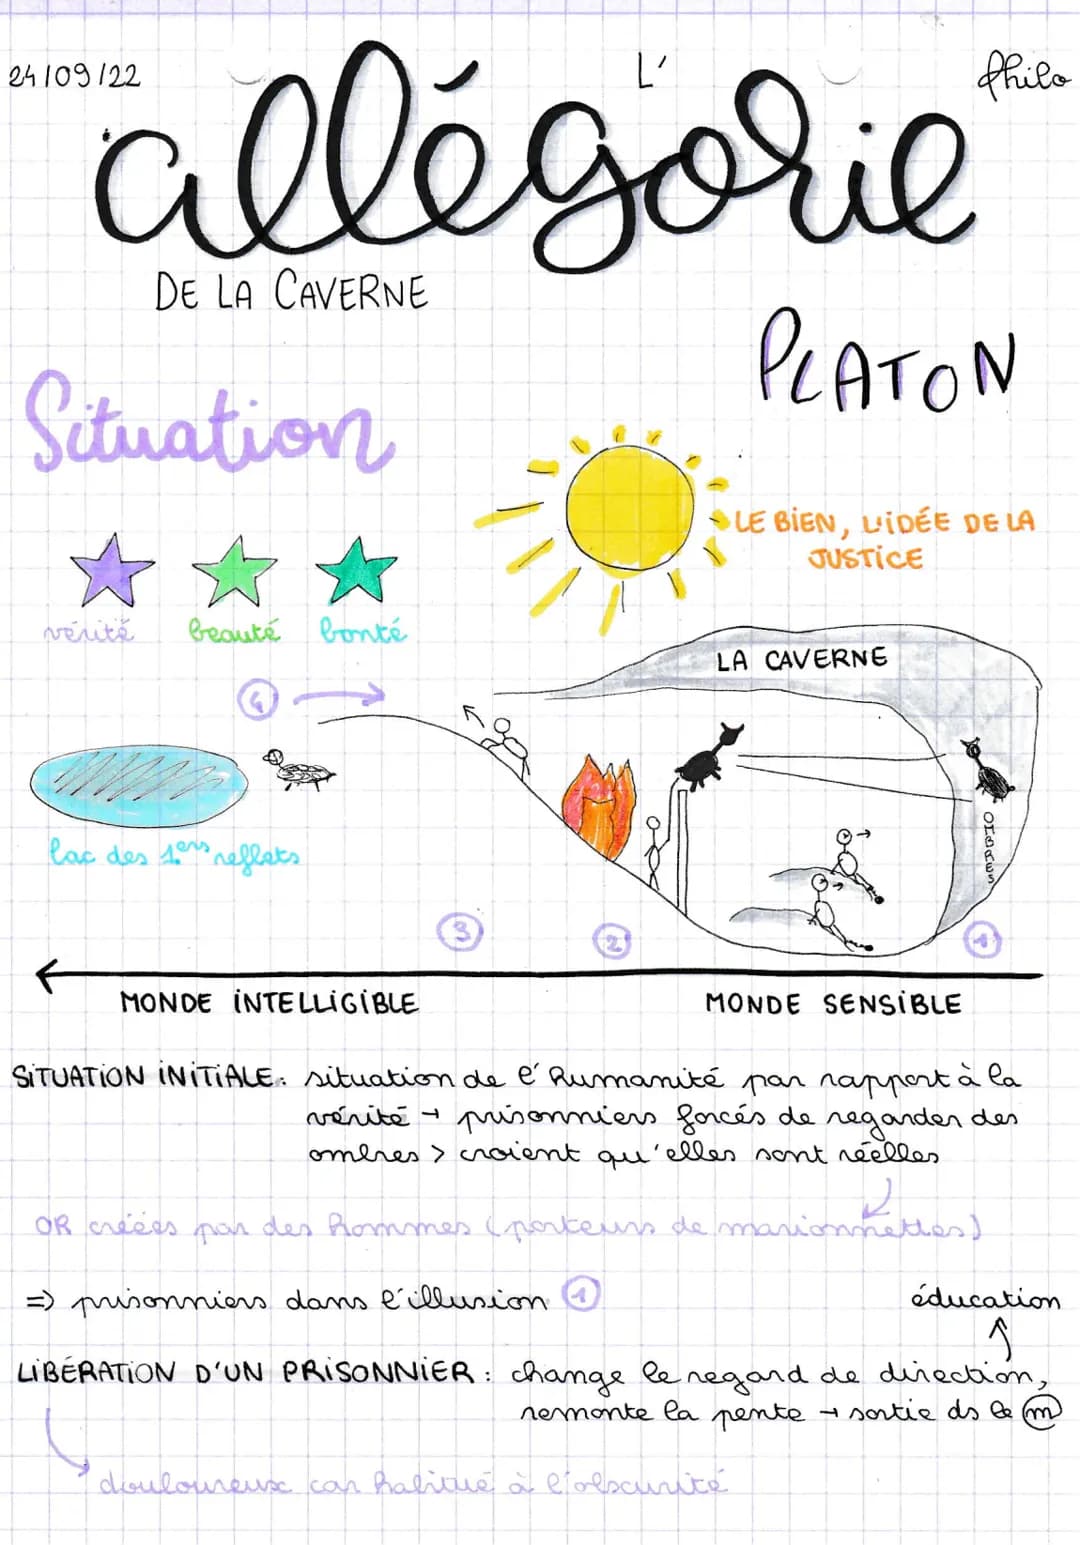 24/09/22
L'
Philo
allégorie
DE LA CAVERNE
PLATON
Situation
LE BIEN, L'IDÉE DE LA
JUSTICE
vérité beauté bonté
LA CAVERNE
4
OMBRES
lac des 1ers reflets
3
2
1
MONDE INTELLIGIBLE
MONDE SENSIBLE
SITUATION INITIALE: situation de l'humanité par rapport à la
vérité → prisonniers forcés de regarder des
ombres > croient qu'elles sont réelles
OR créées par des hommes (porteurs de marionnettes)
=> prisonniers dans l'illusion 1
éducation
LIBÉRATION D'UN PRISONNIER: change le regard de direction,
remonte la pente → sortie ds le m
douloureux car habitué à l'obscurité